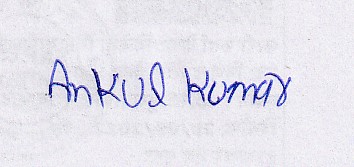 Ankul Kumar